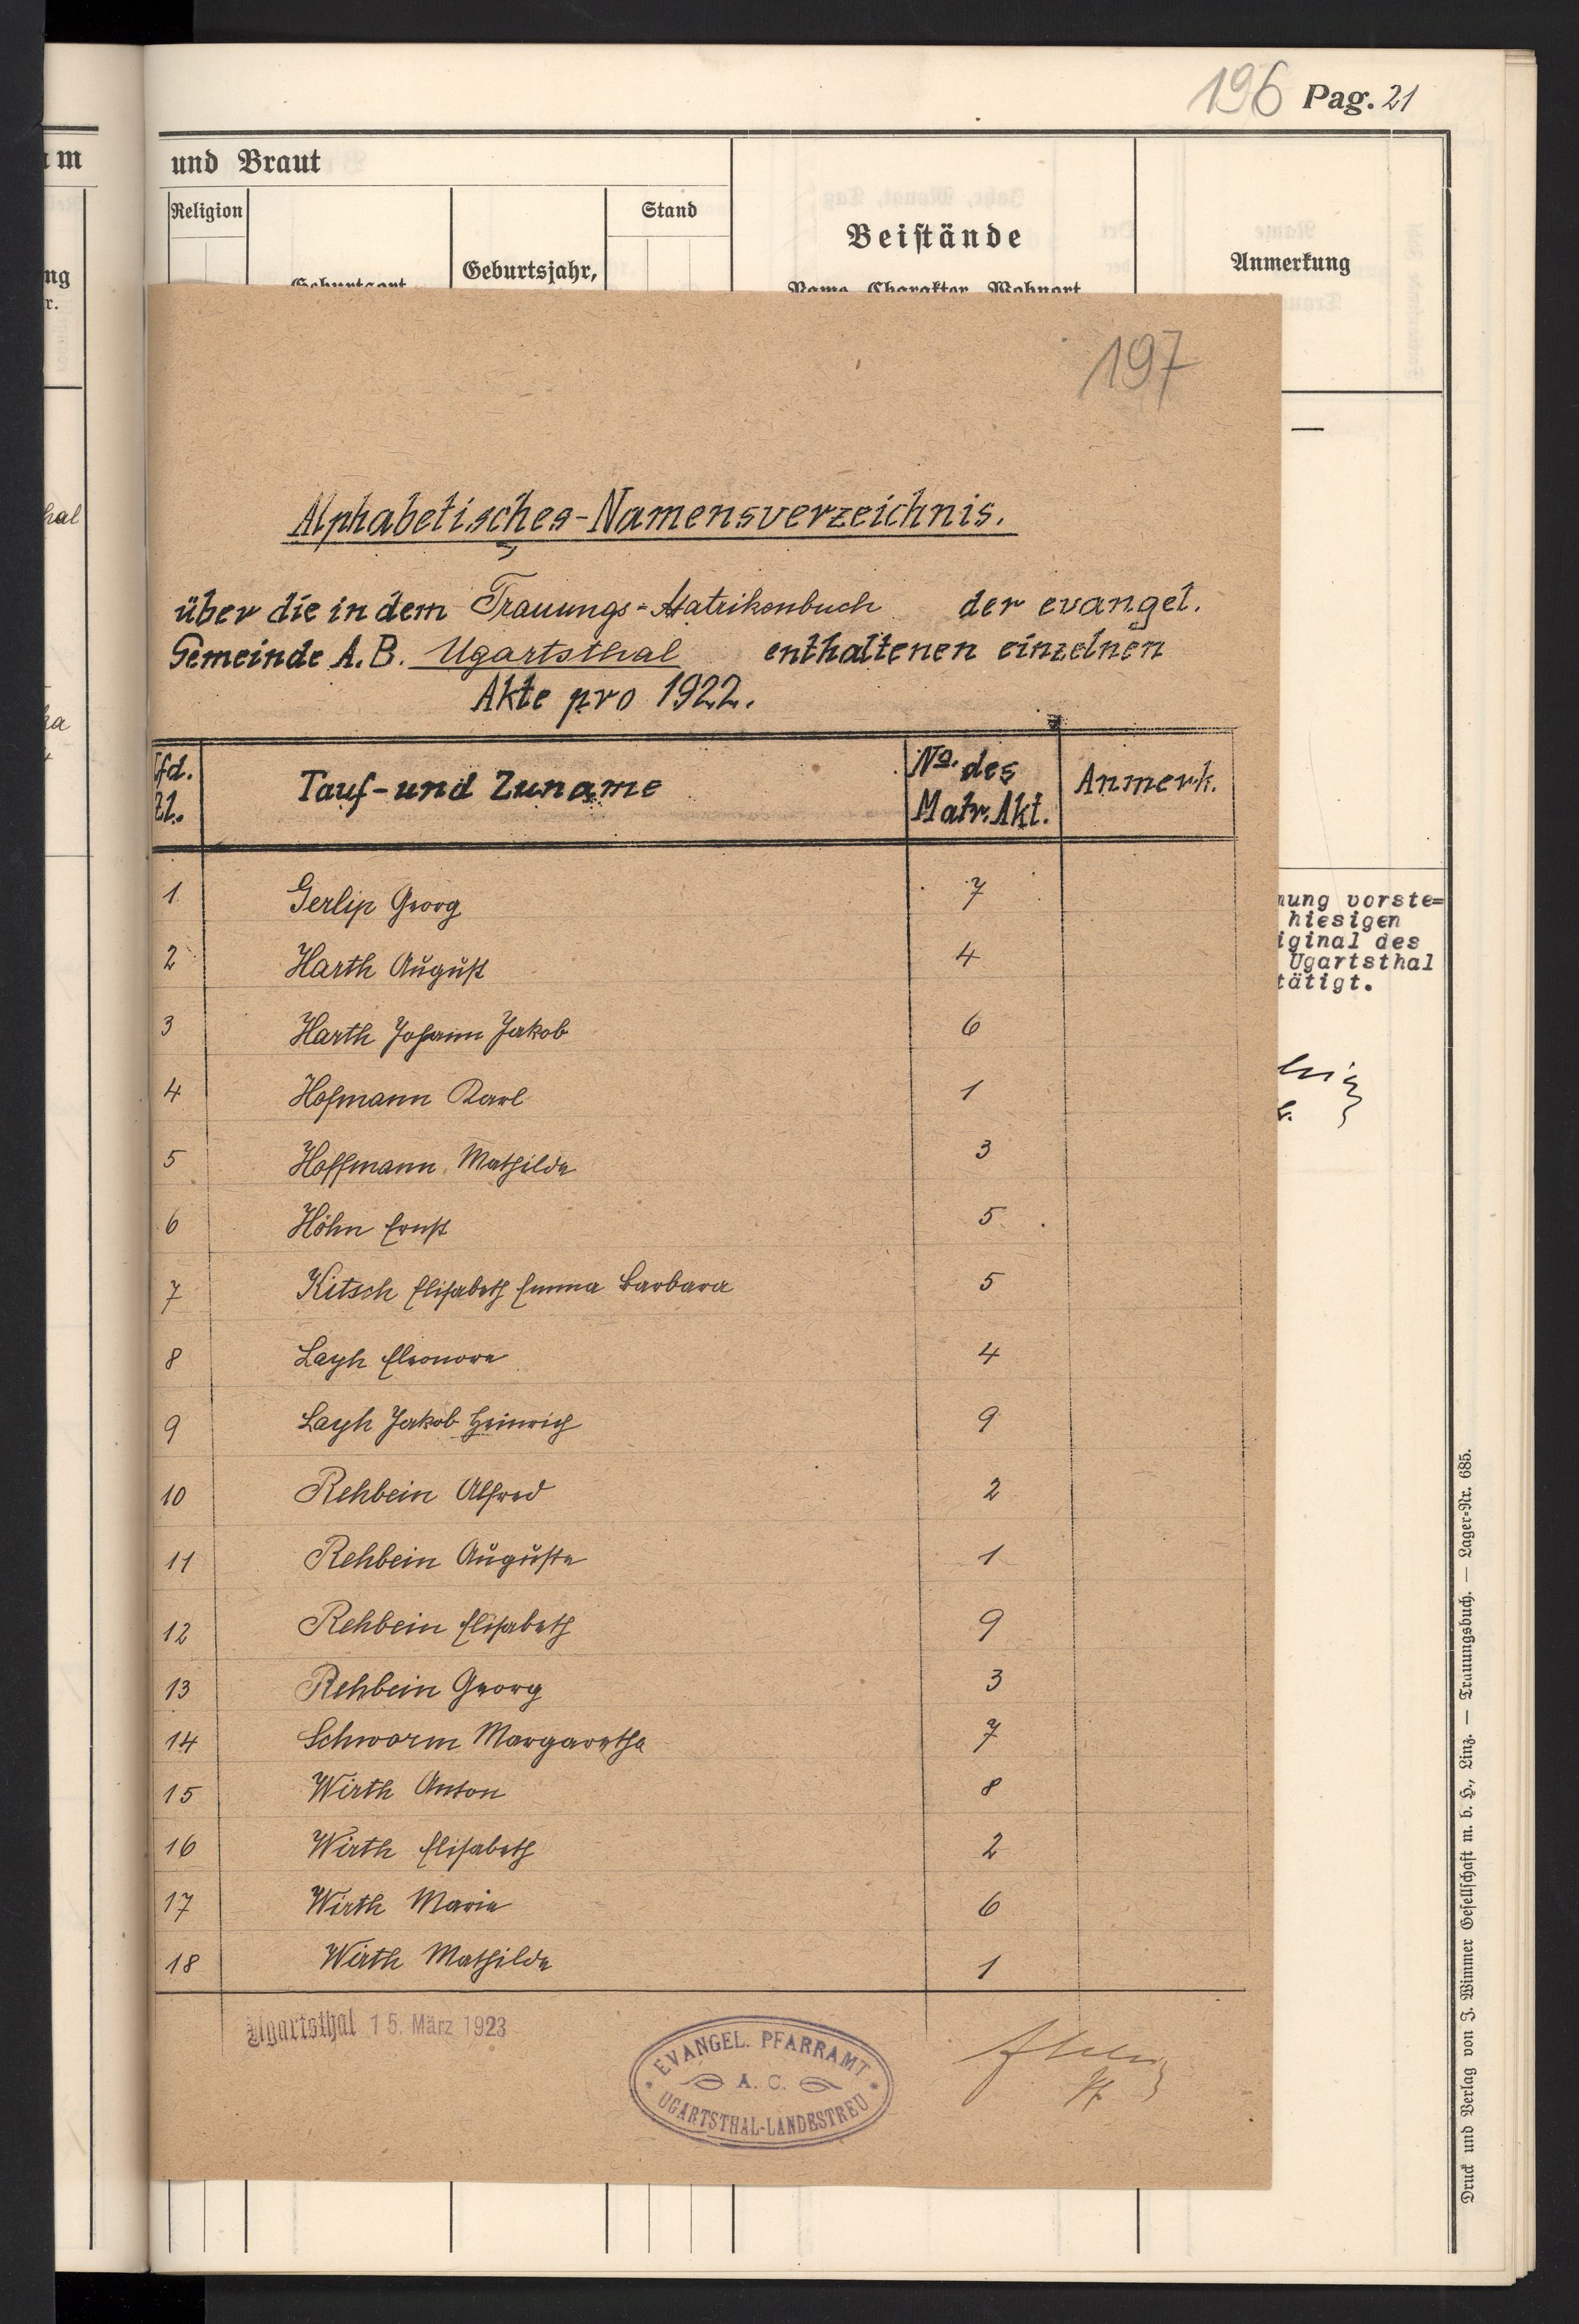 196 Pag. 21
und Braut
Religion
Stand
Geburtsort
Geburtsjahr,
Beistände
Name, Charakter, Wohnort
Anmerkung
197
Alphabetisches-Namensverzeichnis.
über die in dem Trauungs-Matrikenbuch der evangel.
Gemeinde A. B. Ugartsthal enthaltenen einzelnen
Akte pro 1922.
lfd. Zl. Tauf- und Zuname No. des Matr. Akt. Anmerk.
1 Gerlip Georg 7
2 Harth August 4
3 Harth Johann Jakob 6
4 Hofmann Karl 1
5 Hoffmann Mathilde 3
6 Höhn Ernst 5
7 Kitsch Elisabeth Emma Barbara 5
8 Layh Eleonore 4
9 Layh Jakob Heinrich 9
10 Rehbein Alfred 2
11 Rehbein Auguste 1
12 Rehbein Elisabeth 9
13 Rehbein Georg 3
14 Schworm Margaretha 7
15 Wirth Anton 8
16 Wirth Elisabeth 2
17 Wirth Marie 6
18 Wirth Mathilde 1
Ugartsthal 15. März 1923
EVANGEL. PFARRAMT
A. C.
UGARTSTHAL-LANDESTREU
nung vorste=
hiesigen
iginal des
Ugartsthal
tätigt.
Druck und Verlag von J. Wimmer Gesellschaft m. b. H., Linz. — Trauungsbuch. — Lager-Nr. 685.